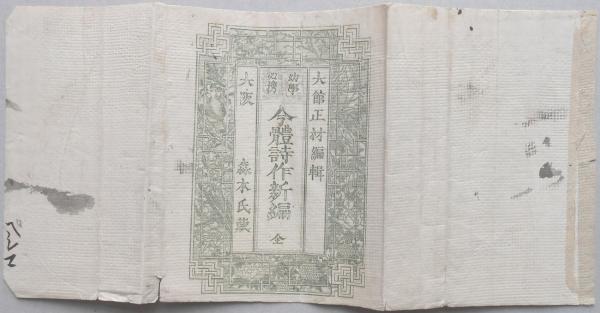 大館正材編輯
幼學必携
今體詩作新編 全
大阪 森本氏藏